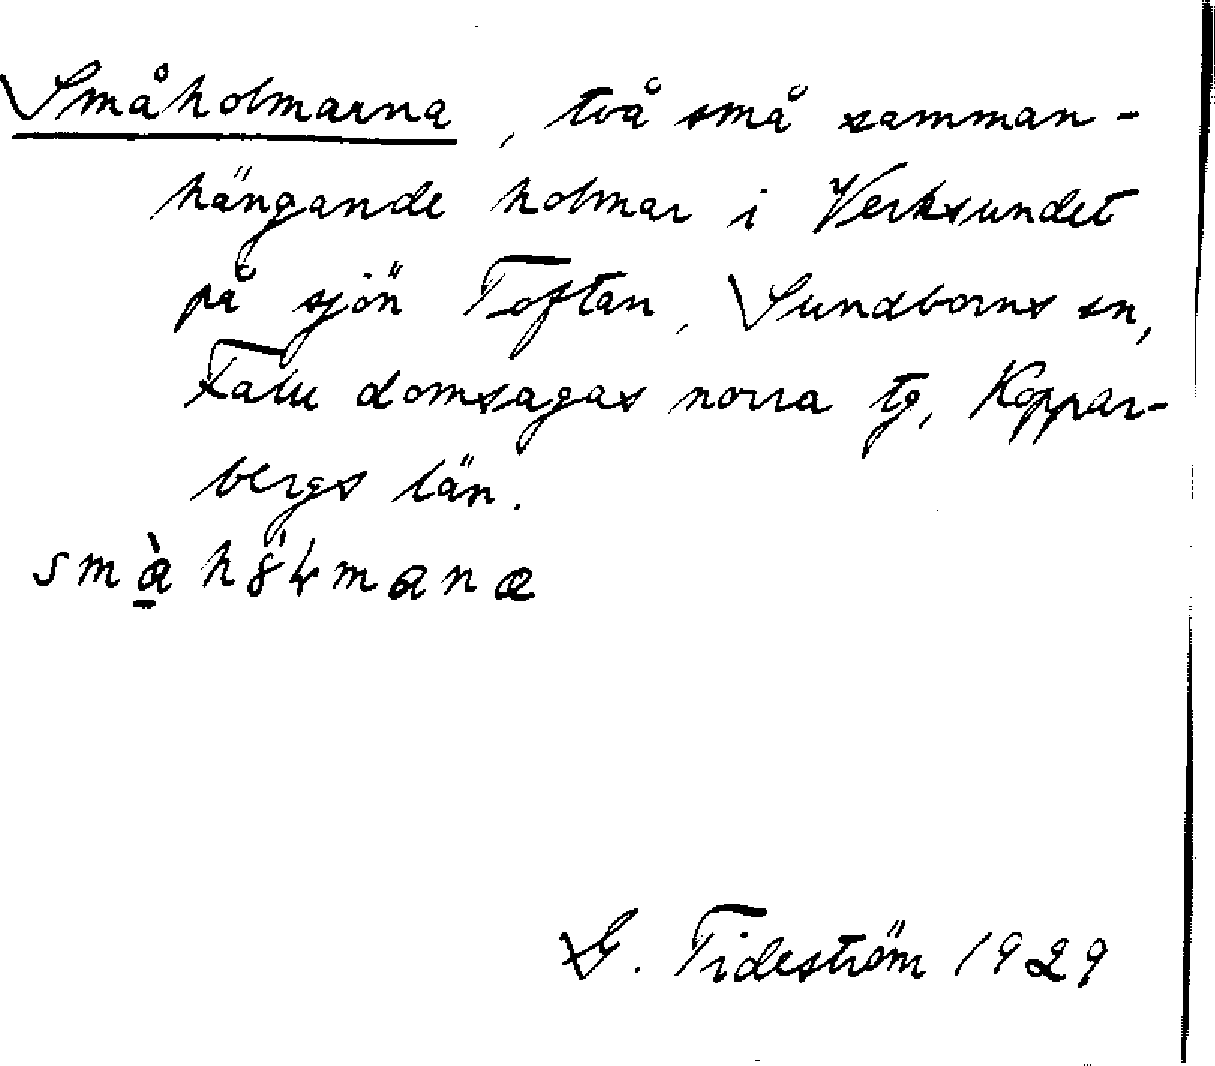 Småholmarna, två små samman-
hängande holmar i Verksundet
på sjön Toftan, Sundborns sn,
Falu domsagas norra tg, Koppar-
bergs län.
G. Tideström 1929